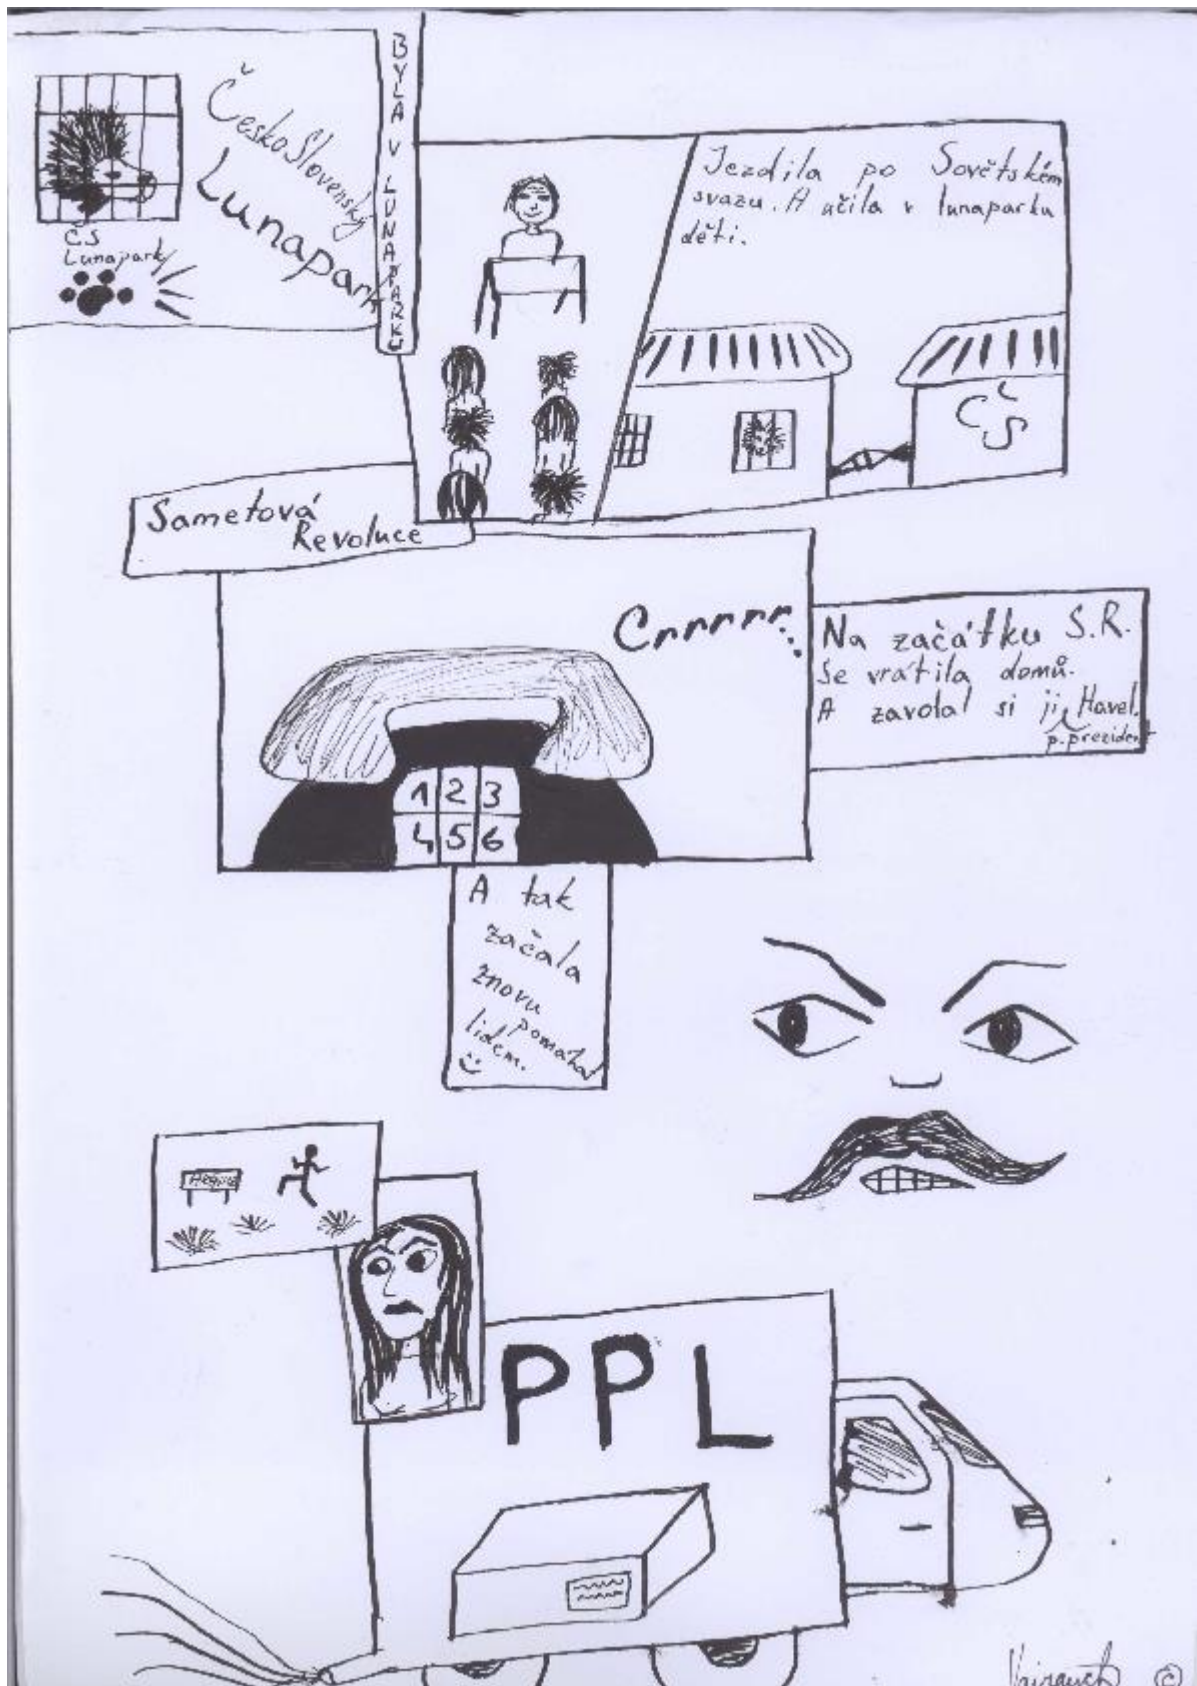 Československý
Lunapark
ČS
Lunapark
BYLA V LUNAPARKU
Jezdila po Sovětském
svazu. A učila v lunaparku
děti.
ČS
Sametová
Revoluce
Crrrrrr...
Na začátku S.R.
se vrátila domů.
A zavolal si ji Havel.
p.prezident
1 2 3
4 5 6
A tak
začala
znovu
pomáhat
lidem.
PPL
©